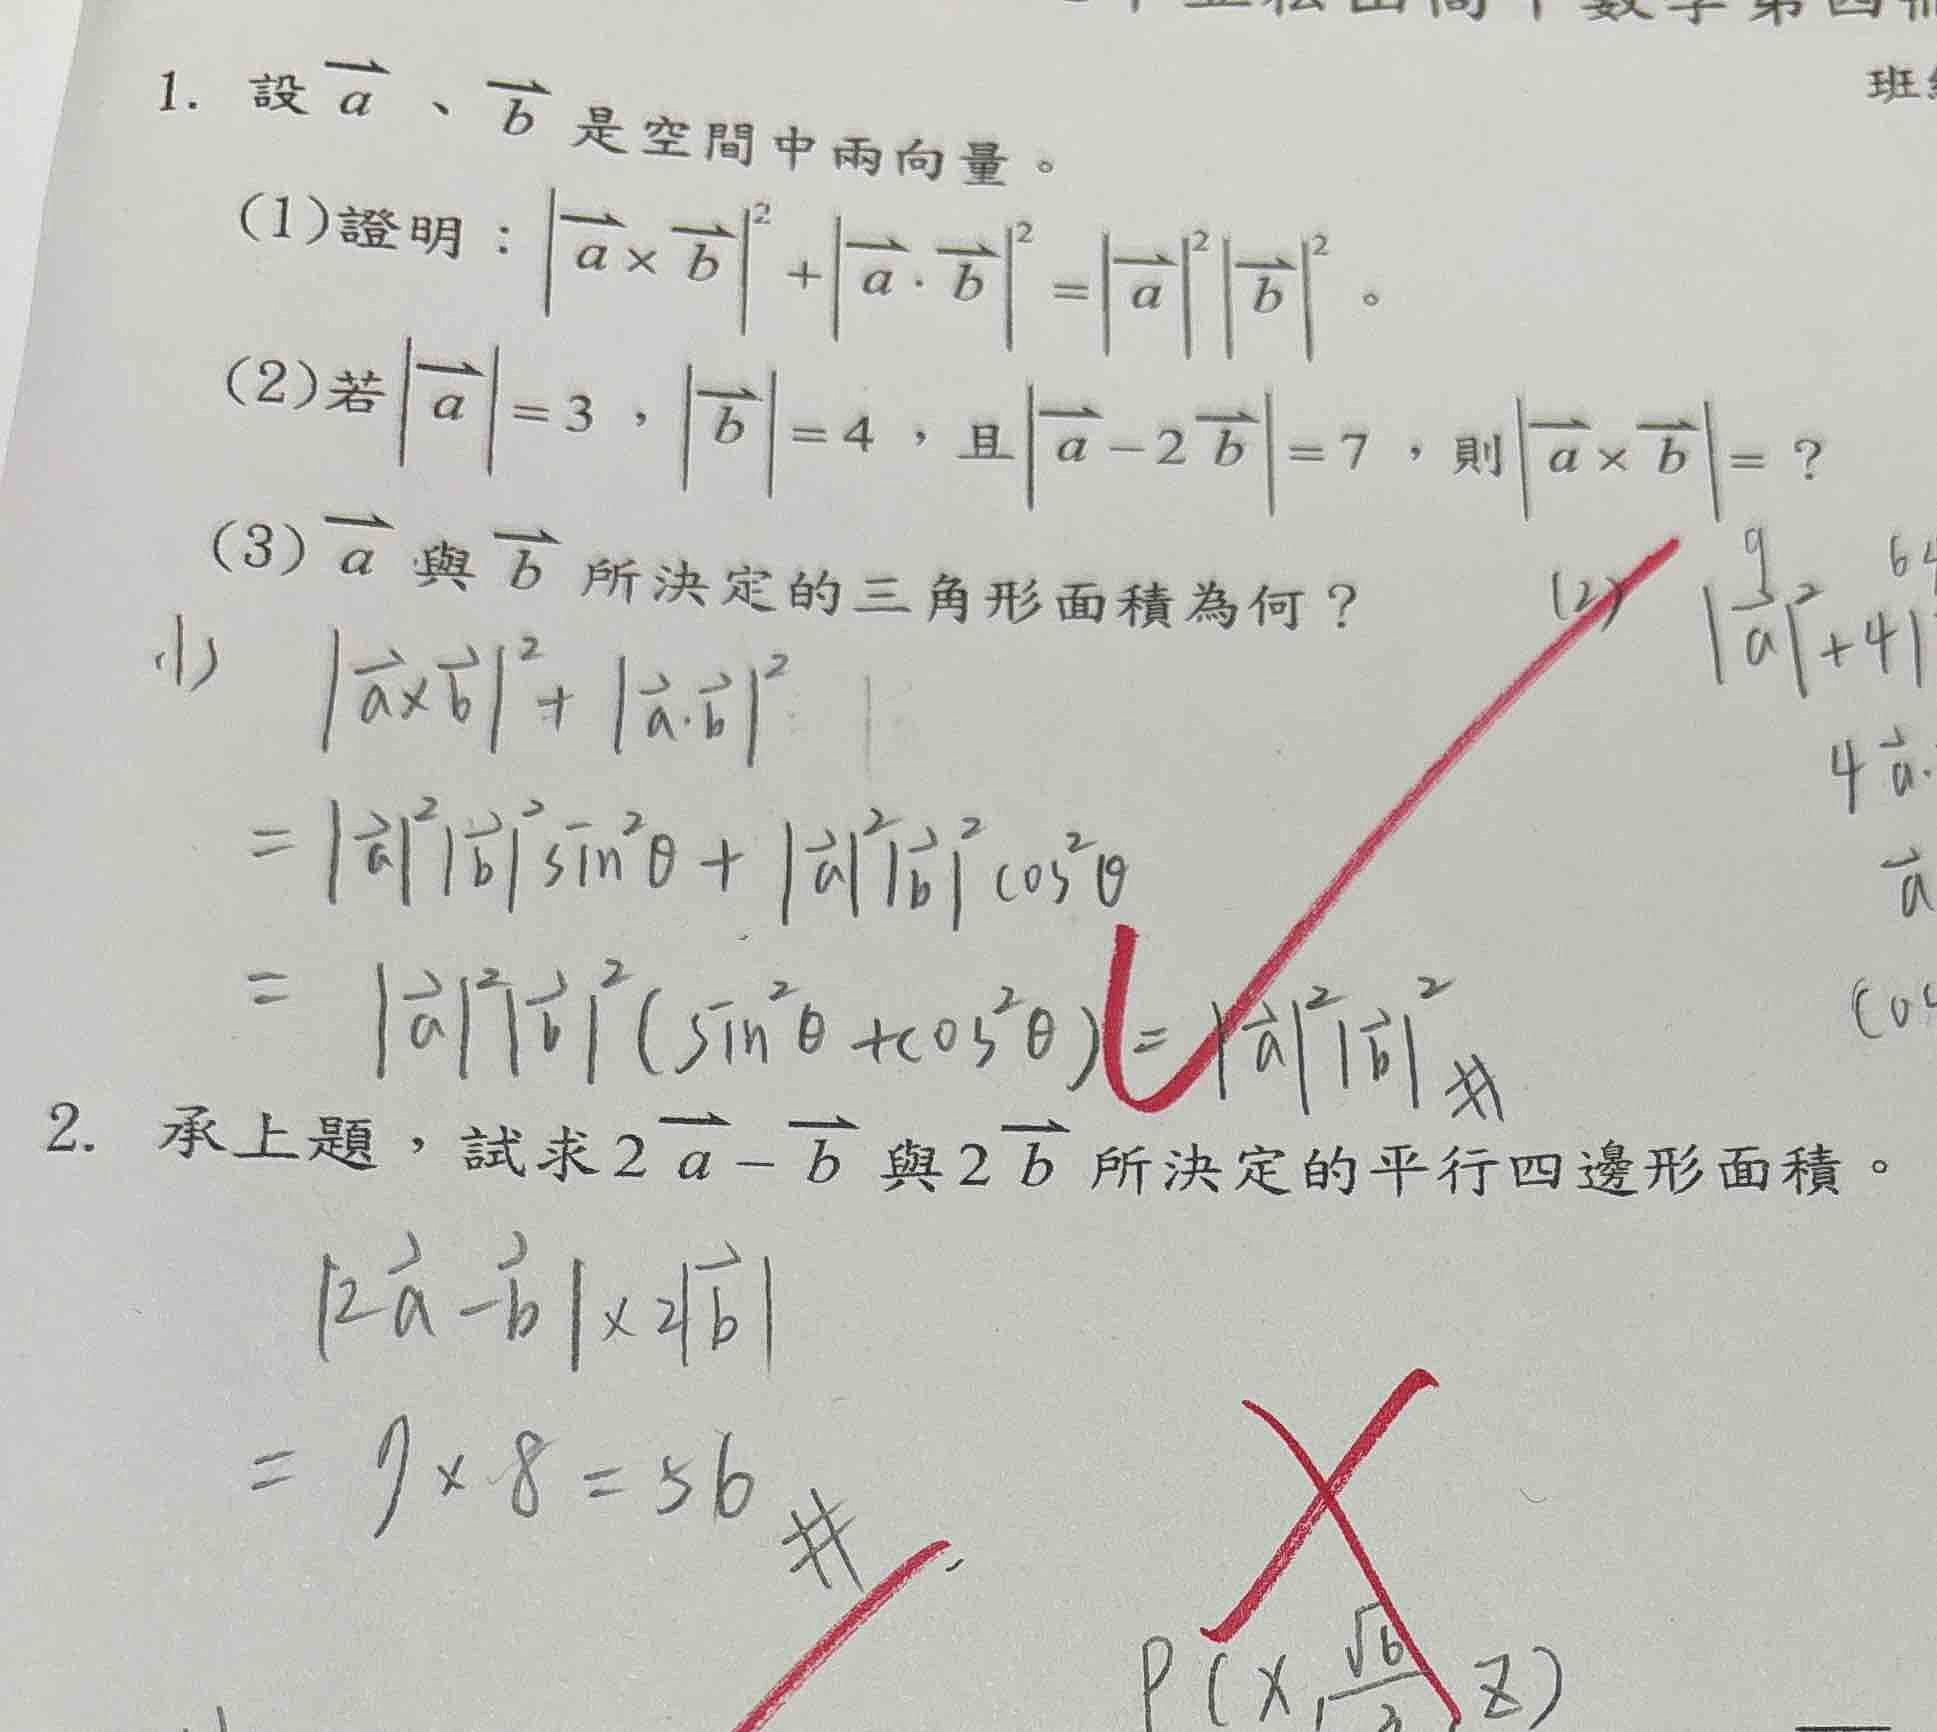 數學第四
班
1. 設 $\vec{a}$、$\vec{b}$ 是空間中兩向量。
(1)證明：$|\vec{a}\times\vec{b}|^2+|\vec{a}\cdot\vec{b}|^2=|\vec{a}|^2|\vec{b}|^2$。
(2)若$|\vec{a}|=3$，$|\vec{b}|=4$，且$|\vec{a}-2\vec{b}|=7$，則$|\vec{a}\times\vec{b}|=$？
(3)$\vec{a}$ 與 $\vec{b}$ 所決定的三角形面積為何？
(1) $|\vec{a}\times\vec{b}|^2+|\vec{a}\cdot\vec{b}|^2$
$=|\vec{a}|^2|\vec{b}|^2\sin^2\theta+|\vec{a}|^2|\vec{b}|^2\cos^2\theta$
$=|\vec{a}|^2|\vec{b}|^2(\sin^2\theta+\cos^2\theta)=|\vec{a}|^2|\vec{b}|^2$ #
(2) 9 64
$|\vec{a}|^2+4|$
$4\vec{a}\cdot$
$\vec{a}$
cos
2. 承上題，試求$2\vec{a}-\vec{b}$ 與$2\vec{b}$ 所決定的平行四邊形面積。
$|2\vec{a}-\vec{b}|\times2|\vec{b}|$
$=7\times8=56$ #
P(x, $\sqrt{6}$, z)